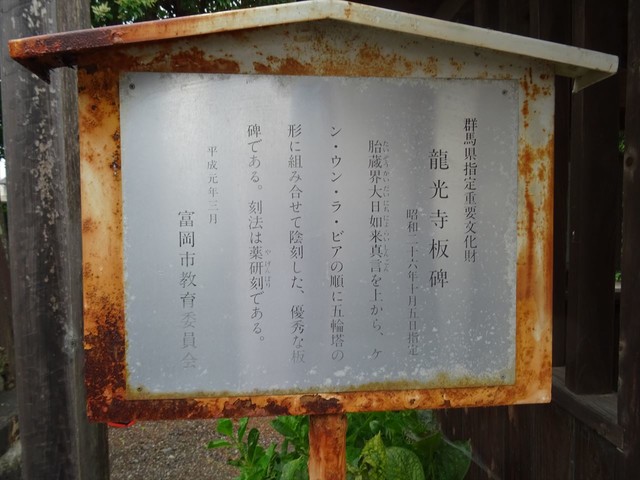 群馬県指定重要文化財
龍光寺板碑
昭和二十六年十月五日指定
胎蔵界大日如来真言を上から、ケ
ン・ウン・ラ・ビアの順に五輪塔の
形に組み合せて陰刻した、優秀な板
碑である。刻法は薬研刻である。
平成元年三月
富岡市教育委員会